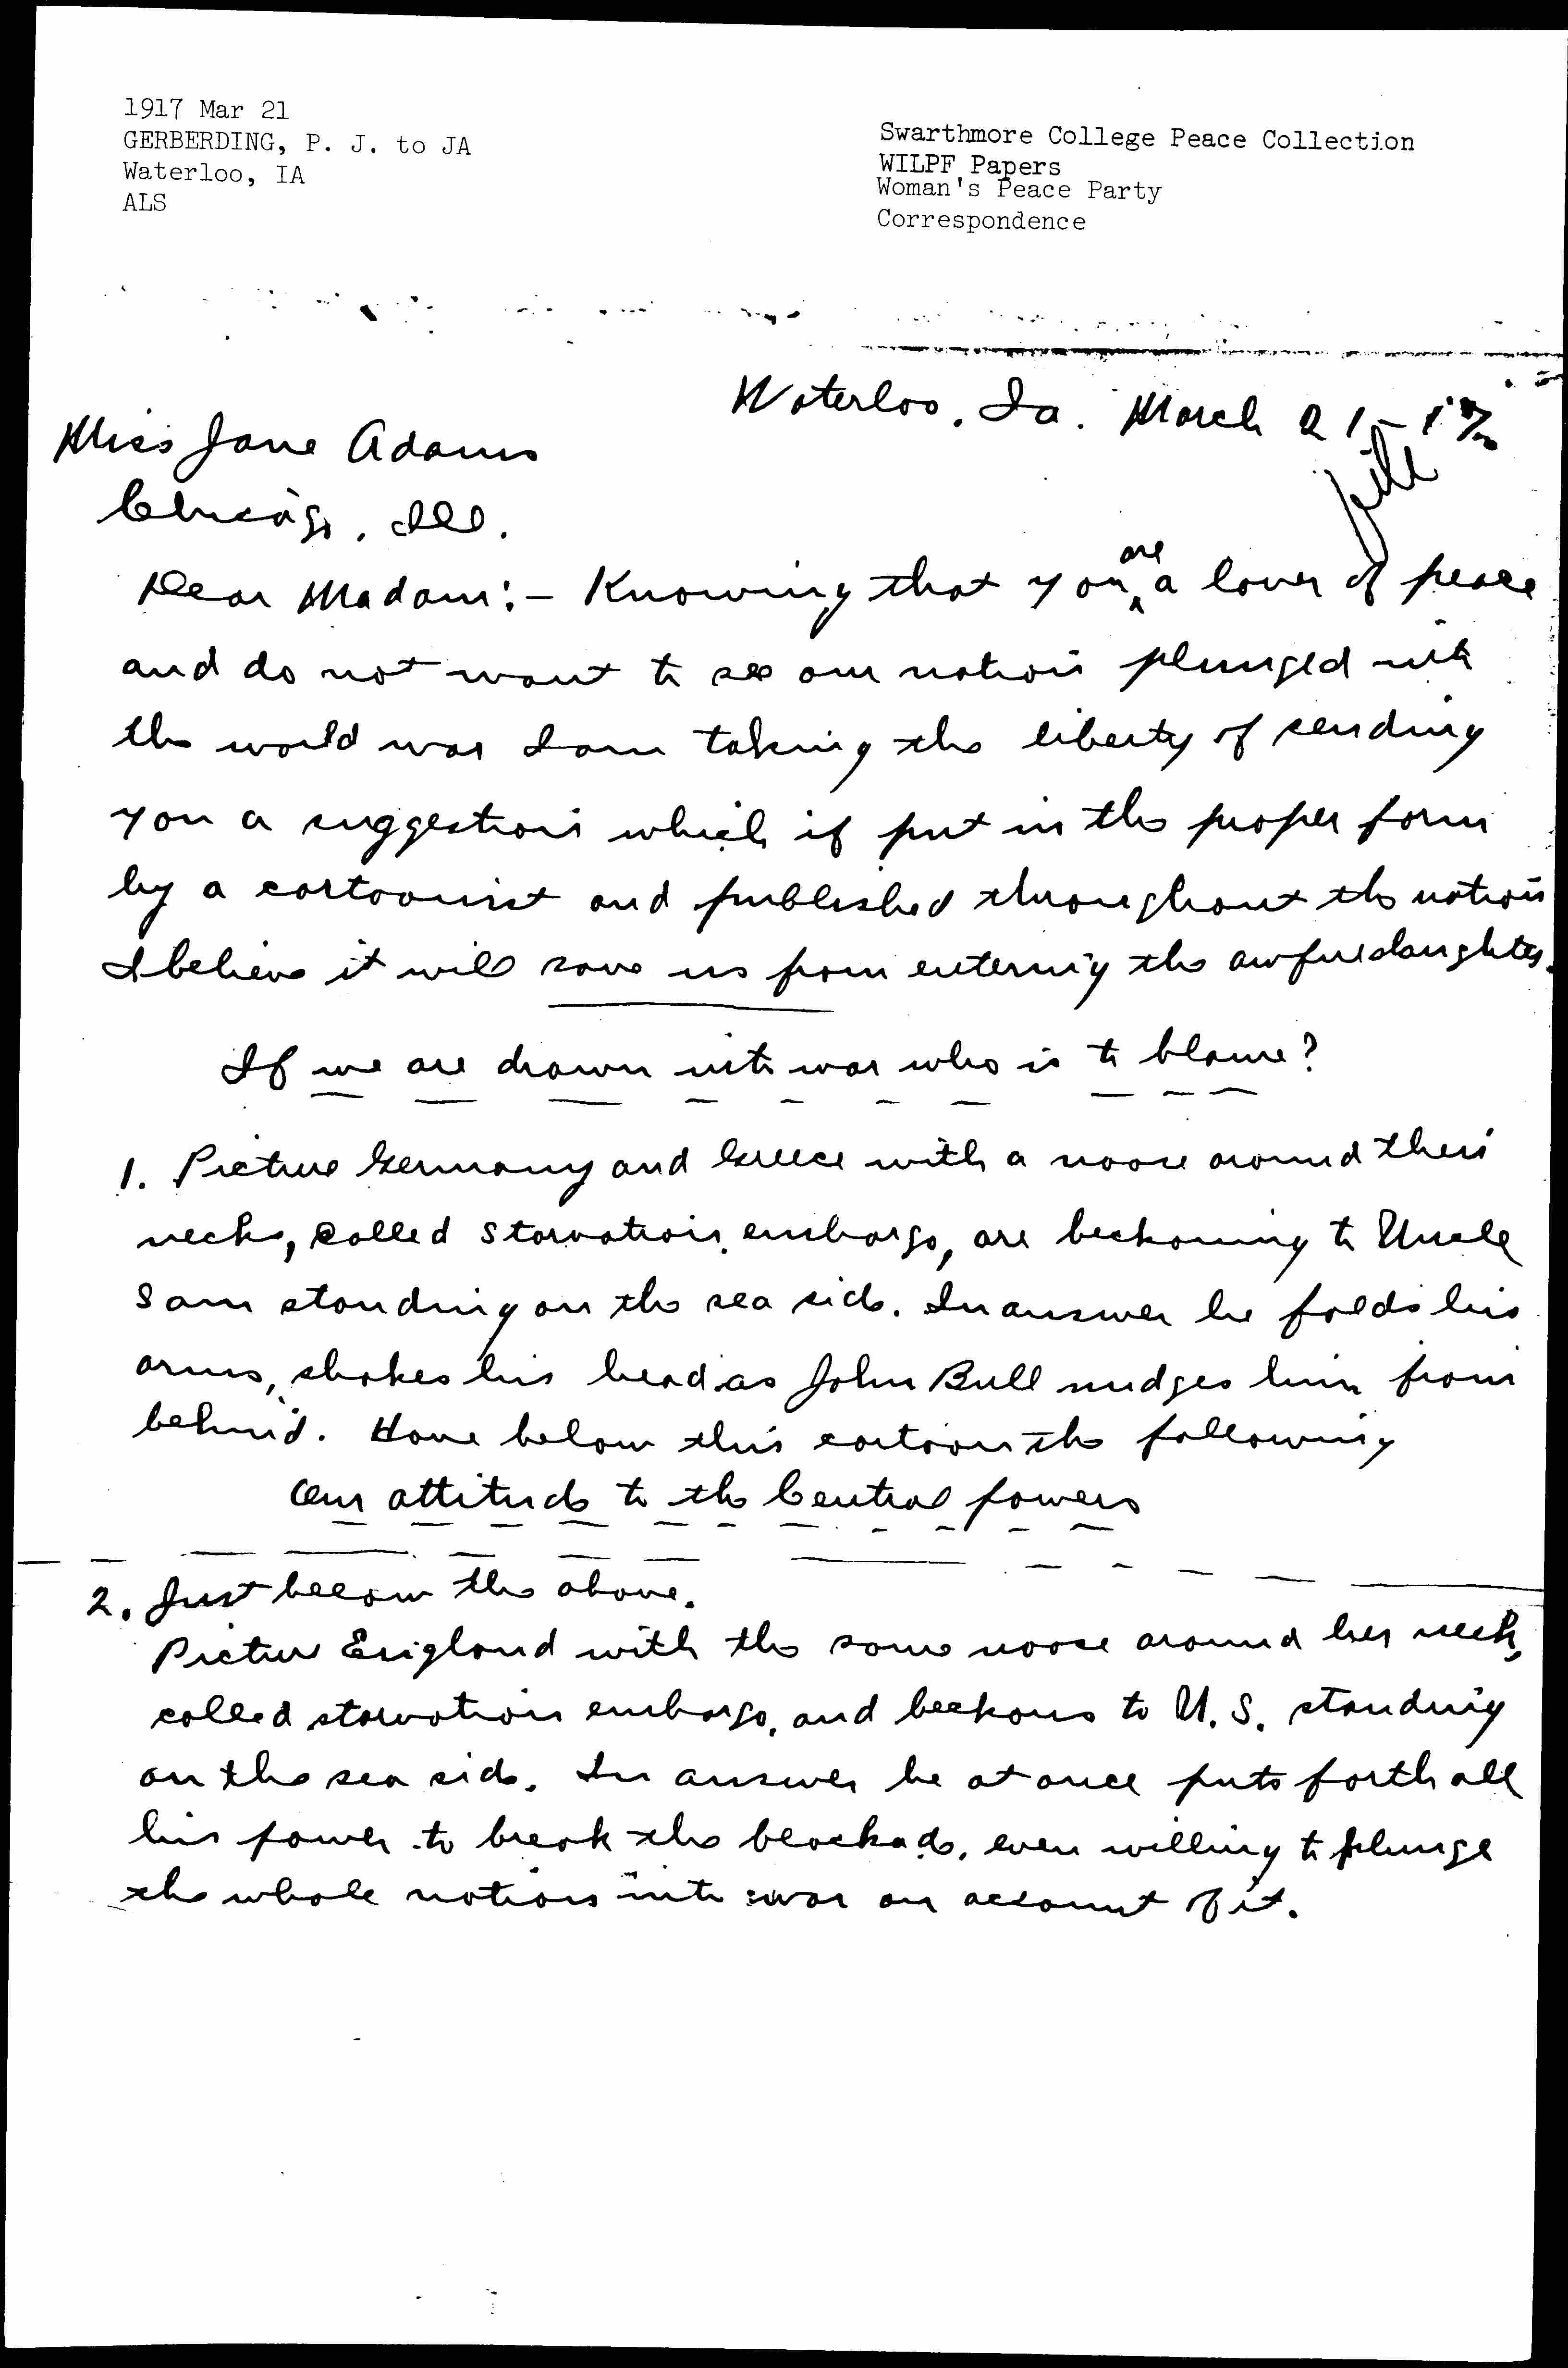 1917 Mar 21
GERBERDING, P. J. to JA
Waterloo, IA
ALS
Swarthmore College Peace Collection
WILPF Papers
Woman's Peace Party
Correspondence
Waterloo, Ia. March 21-17
file
Miss Jane Adams
Chicago, Ill.
Dear Madam:- Knowing that you are a lover of peace
and do not want to see our nation plunged into
the world war I am taking the liberty of sending
you a suggestion which if put in the proper form
by a cartoonist and published throughout the nation
I believe it will save us from entering the awful slaughter.
If we are drawn into war who is to blame?
1. Picture Germany and Greece with a noose around their
necks, called starvation embargo, are beckoning to Uncle
Sam standing on the sea side. In answer he folds his
arms, shakes his head as John Bull nudges him from
behind. Have below this cartoon the following
Our attitude to the Central powers
2. Just below the above.
Picture England with the same noose around her neck,
called starvation embargo, and beckons to U.S. standing
on the sea side. In answer he at once puts forth all
his power to break the blockade, even willing to plunge
the whole nation into war on account of it.